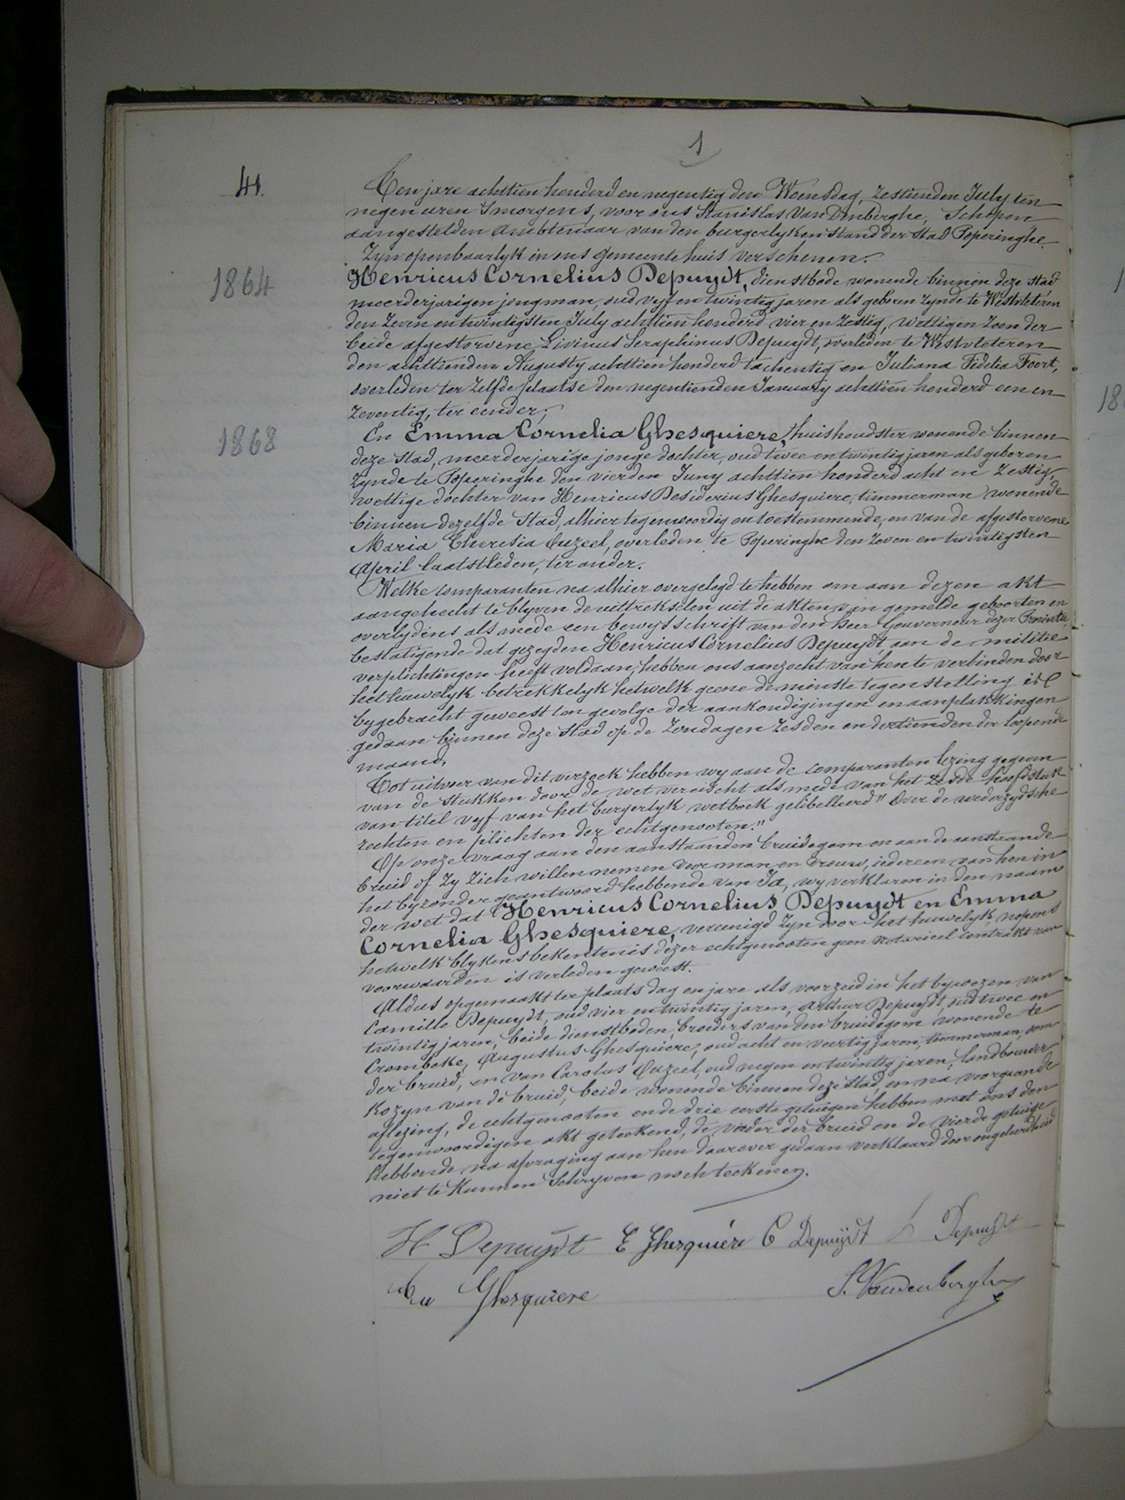 1
41.
Ten jare achttien honderd en negentig den Woensdag, zestienden July ten
negen uren 's morgens, voor ons Stanislas Van Denberghe, Schepen
aangestelden ambtenaar van den burgerlyken stand der stad Poperinghe,
zyn openbaarlyk in ons gemeente huis verschenen.
1864
Henricus Cornelius Depuydt, dienstbode wonende binnen deze stad
meerderjarigen jongman, oud vyf en twintig jaren als geboren zynde te Westvleteren
den zeven en twintigsten July achttien honderd vier en zestig, wettigen zoon der
beide afgestorvene Livinus Seraphinus Depuydt, overleden te Westvleteren
den achttienden Augusty achttien honderd tachentig en Juliana Fidelia Foort,
overleden ter zelfde plaatse den negentienden January achttien honderd een en
zeventig, ter eender;
1868
En Emma Cornelia Ghesquiere, huishoudster wonende binnen
deze stad, meerderjarige jonge dochter, oud twee en twintig jaren als geboren
zynde te Poperinghe den vierden Juny achttien honderd acht en zestig,
wettige dochter van Henricus Desiderius Ghesquiere, timmerman wonende
binnen dezelfde stad, alhier tegenwoordig en toestemmende, en van de afgestorvene
Maria Theresia Cuzeel, overleden te Poperinghe den zeven en twintigsten
April laatstleden, ter ander.
Welke comparanten na alhier overgelegd te hebben om aan dezen akt
aangehecht te blyven de uittrekselen uit de akten van gemelde geboorten en
overlydens alsmede een bewysschrift van den heer Gouverneur dezer Provintie
bestatigende dat gezeyden Henricus Cornelius Depuydt aan de militie
verplichtingen heeft voldaan, hebben ons aanzocht van hen te verbinden door
het huwelyk betrekkelyk hetwelk geene de minste tegenstelling is
bygebracht geweest ten gevolge der aankondigingen en aanplakkingen
gedaan binnen deze stad op de Zondagen zesden en dertienden der loopende
maand.
Tot uitvoer van dit verzoek hebben wy aan de comparanten lezing gegeven
van de stukken door de wet vereischt als mede van het zesde hoofdstuk
van titel vyf van het burgerlyk wetboek gelibelleerd "Over de wederzydsche
rechten en plichten der echtgenooten."
Op onze vraag aan den aanstaanden bruidegom en aan de aanstaande
bruid of zy zich willen nemen voor man en vrouw, iedereen van hen in
het byzonder geantwoord hebbende van Ja, wy verklaren in den naam
der wet dat Henricus Cornelius Depuydt en Emma
Cornelia Ghesquiere, vereenigd zyn door het huwelyk nopens
hetwelk blykens bekentenis dezer echtgenooten geen notarieel contrakt van
voorwaarden is verleden geweest.
Aldus opgemaakt ter plaats dag en jare als voorzeid in het bywezen van
Camille Depuydt, oud vier en twintig jaren, Arthur Depuydt, oud twee en
twintig jaren, beide dienstboden, broeders van den bruidegom wonende te
Crombeke, Augustus Ghesquiere, oud acht en veertig jaren, timmerman, oom
der bruid, en van Carolus Cuzeel, oud negen en twintig jaren, landbouwer
Kozyn van de bruid, beide wonende binnen deze stad, en na voorgaande
aflezing, de echtgenooten en de drie eerste getuigen hebben met ons den
tegenwoordigen akt geteekend, de vader der bruid en de vierde getuige
hebbende na afvraging aan hen daarover gedaan verklaard door ongeleerdheid
niet te kunnen schryven noch teekenen.
H Depuydt E Ghesquière C Depuydt Depuydt
Ghesquiere S. Vandenberghe